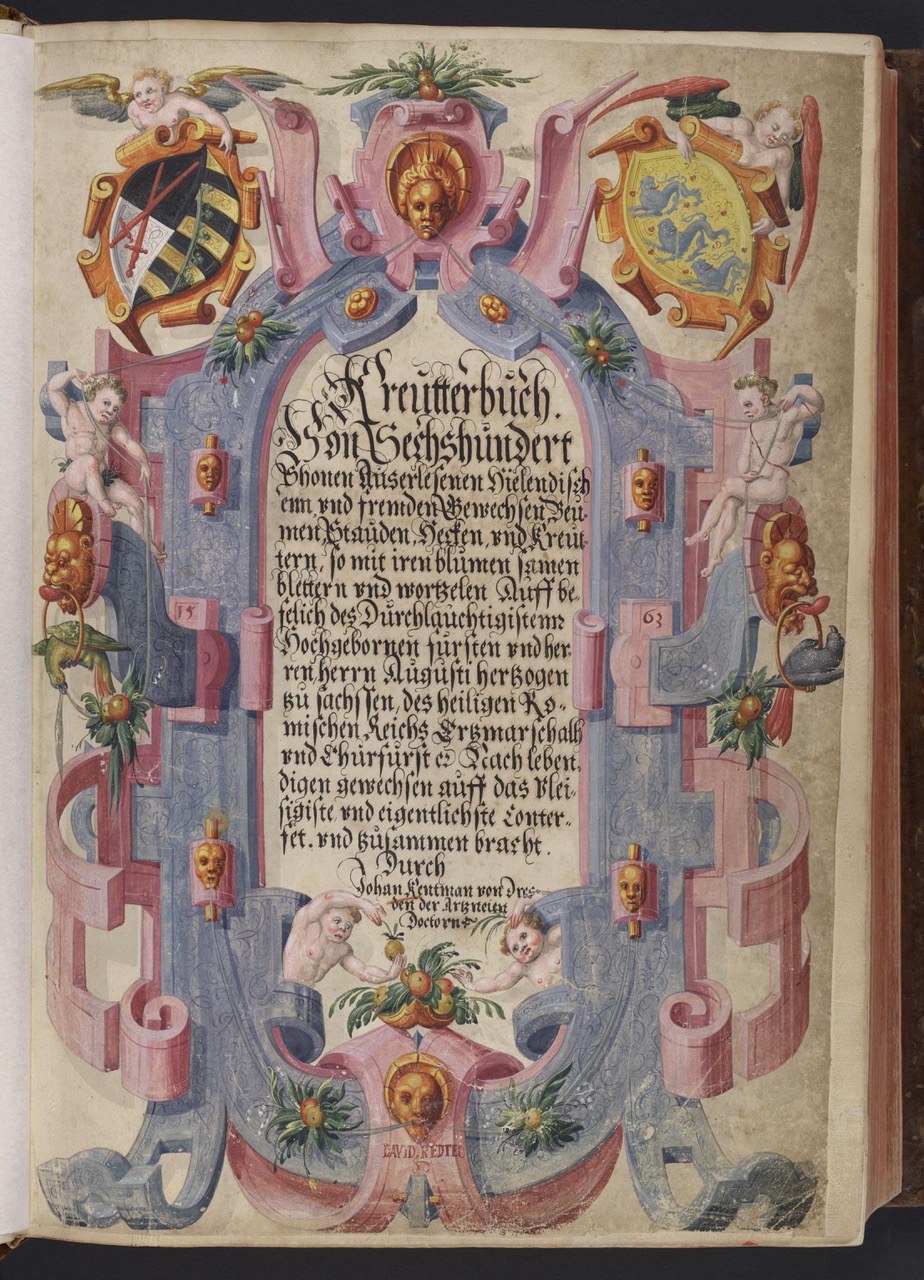 Kreutterbuch.
Von Sechshundert
Shonen Auserlesenen Hielendisch
enn vnd fremden Gewechsen Beu-
men, Stauden, Hecken, vnd Kreut-
tern, so mit iren blumen samen
blettern vnd wortzelen Auff be-
felich des Durchlauchtigistenn
Hochgebornen fursten vnd her-
ren, herrn Augusti hertzogen
zu sachssen, des heiligen Ro-
mischen Reichs Ertzmarschalh
vnd Churfurst ꝛc Nach leben-
digen gewechsen auff das vlei-
sigiste vnd eigentlichste Conter-
fet. vnd zusammen bracht.
Durch
Johan Kentman von Dres-
den der Artzneien
Doctorn
15 63
DAVID. REDTEL